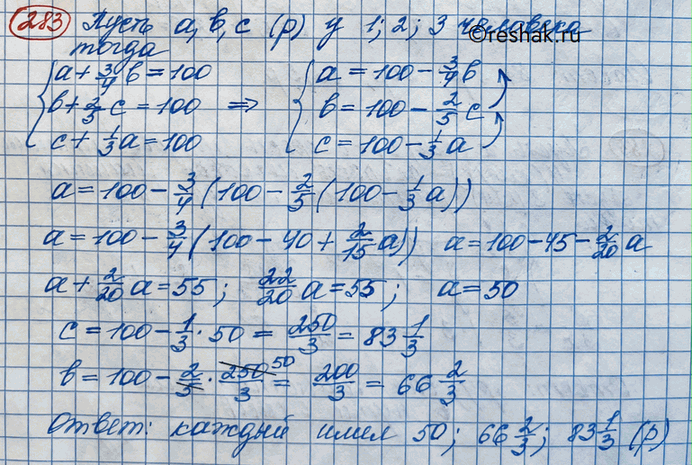 283 Пусть a, b, c (р) у 1; 2; 3 человека
©reshak.ru
тогда
{ a + 3/4 b = 100 { a = 100 - 3/4 b
{ b + 2/5 c = 100 ⇒ { b = 100 - 2/5 c
{ c + 1/3 a = 100 { c = 100 - 1/3 a
a = 100 - 3/4 (100 - 2/5 (100 - 1/3 a))
a = 100 - 3/4 (100 - 40 + 2/15 a)) a = 100 - 45 - 2/20 a
a + 2/20 a = 55; 22/20 a = 55; a = 50
c = 100 - 1/3 · 50 = 250/3 = 83 1/3
b = 100 - 2/5 · 250/3 50 = 200/3 = 66 2/3
Ответ: каждый имел 50; 66 2/3; 83 1/3 (р)